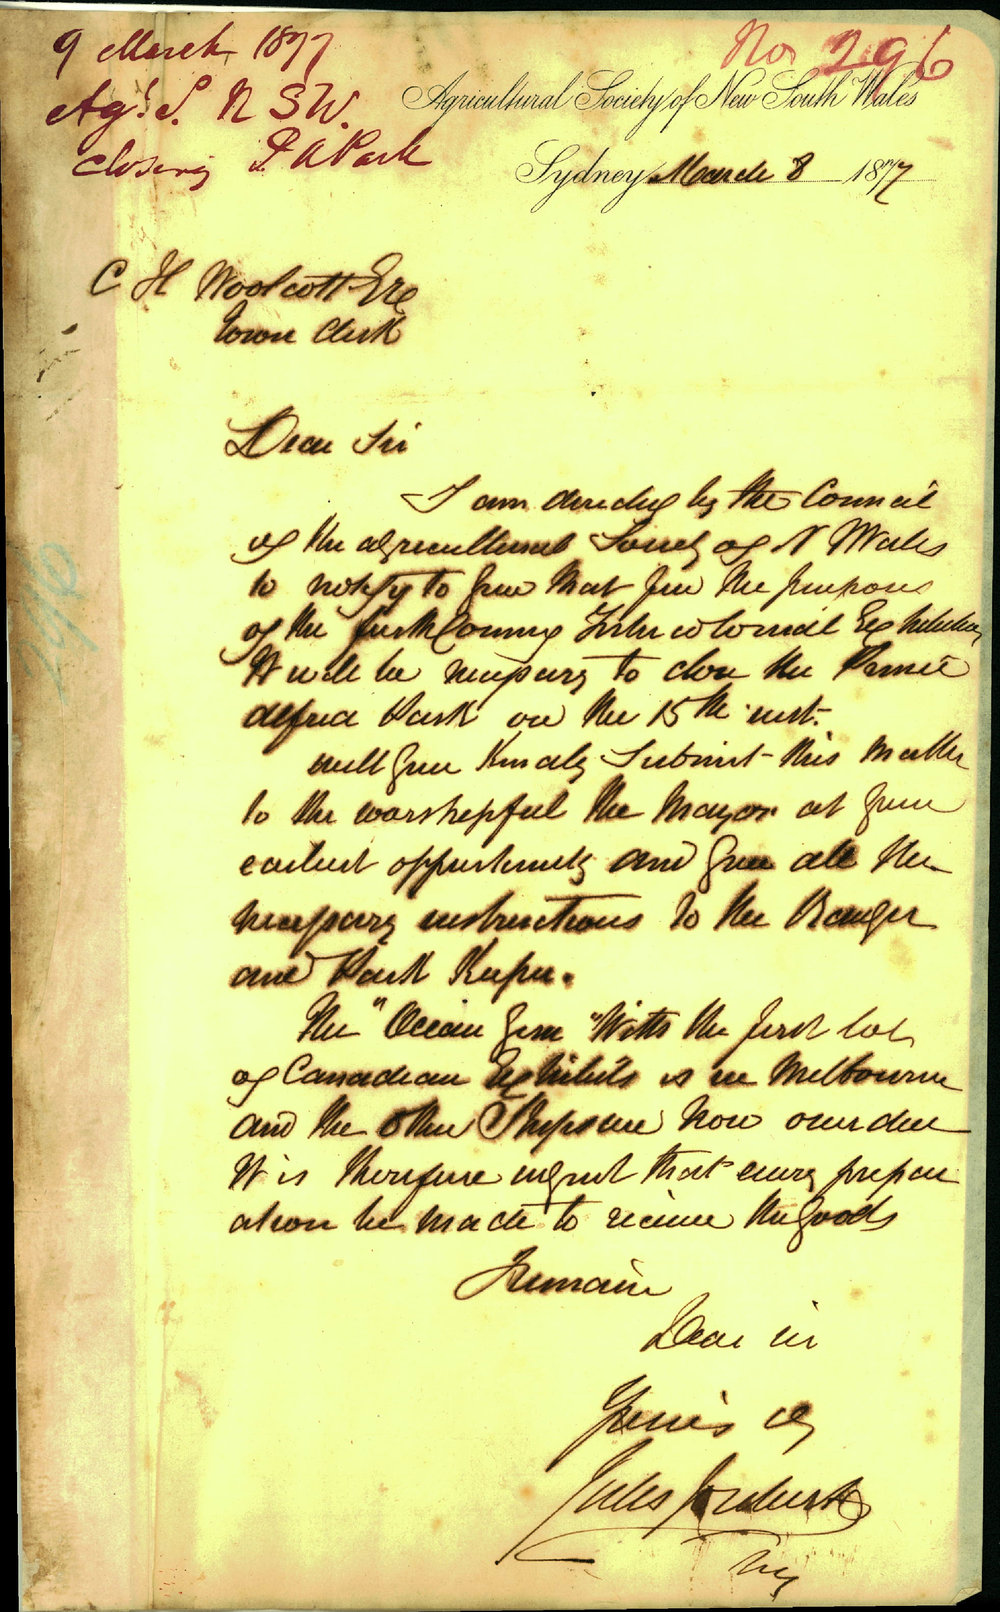 9 March 1877
No 296
Agl. S. N S W.
closing P. A Park
Agricultural Society of New South Wales
Sydney March 8 1877
C H Woolcott Esq
Town Clerk
296
Dear Sir
I am directed by the Council
of the Agricultural Society of N Wales
to notify to you that for the purposes
of the forthcoming Intercolonial Exhibition
it will be necessary to close the Prince
Alfred Park on the 15th inst.
will you kindly submit this matter
to the worshipful the Mayor at your
earliest opportunity and give all the
necessary instructions to the Ranger
and Park Keeper.
The "Ocean Gem" with the first lot
of Canadian Exhibits is in Melbourne
and the other Ships are now overdue
It is therefore urgent that every prepar
ation be made to receive the goods
I remain
Dear sir
Yours &c
Jules Joubert